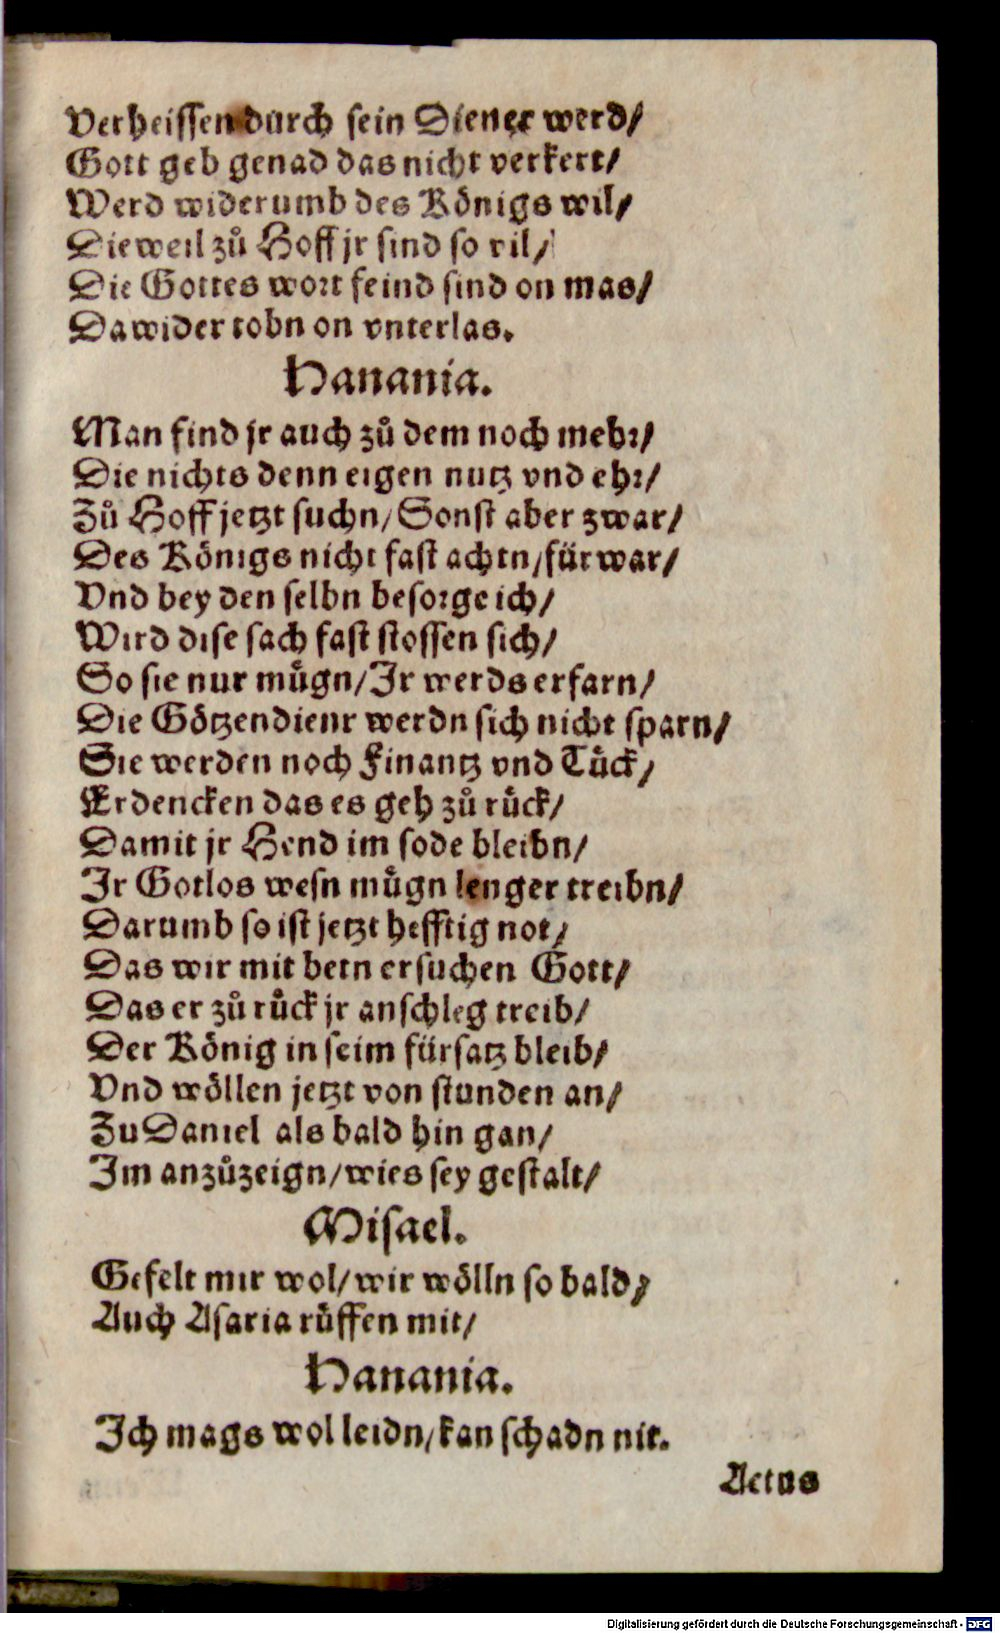 Verheissen durch sein Diener werd/
Gott geb genad das nicht verkert/
Werd widerumb des Königs wil/
Dieweil zů Hoff jr sind so vil/
Die Gottes wort feind sind on mas/
Dawider tobn on vnterlas.
Hanania.
Man find jr auch zů dem noch mehr/
Die nichts denn eigen nutz vnd ehr/
Zů Hoff jetzt suchn/Sonst aber zwar/
Des Königs nicht fast achtn/fürwar/
Vnd bey den selbn besorge ich/
Wird dise sach fast stossen sich/
So sie nur mügn/Ir werds erfarn/
Die Götzendienr werdn sich nicht sparn/
Sie werden noch Finantz vnd Tück/
Erdencken das es geh zů rück/
Damit jr Hend im sode bleibn/
Ir Gotlos wesn mügn lenger treibn/
Darumb so ist jetzt hefftig not/
Das wir mit betn ersuchen Gott/
Das er zů rück jr anschleg treib/
Der König in seim fürsatz bleib/
Vnd wöllen jetzt von stunden an/
Zu Daniel als bald hin gan/
Im anzůzeign/wies sey gestalt/
Misael.
Gefelt mir wol/wir wölln so bald/
Auch Asaria rüffen mit/
Hanania.
Ich mags wol leidn/kan schadn nit.
Actus
Digitalisierung gefördert durch die Deutsche Forschungsgemeinschaft - DFG